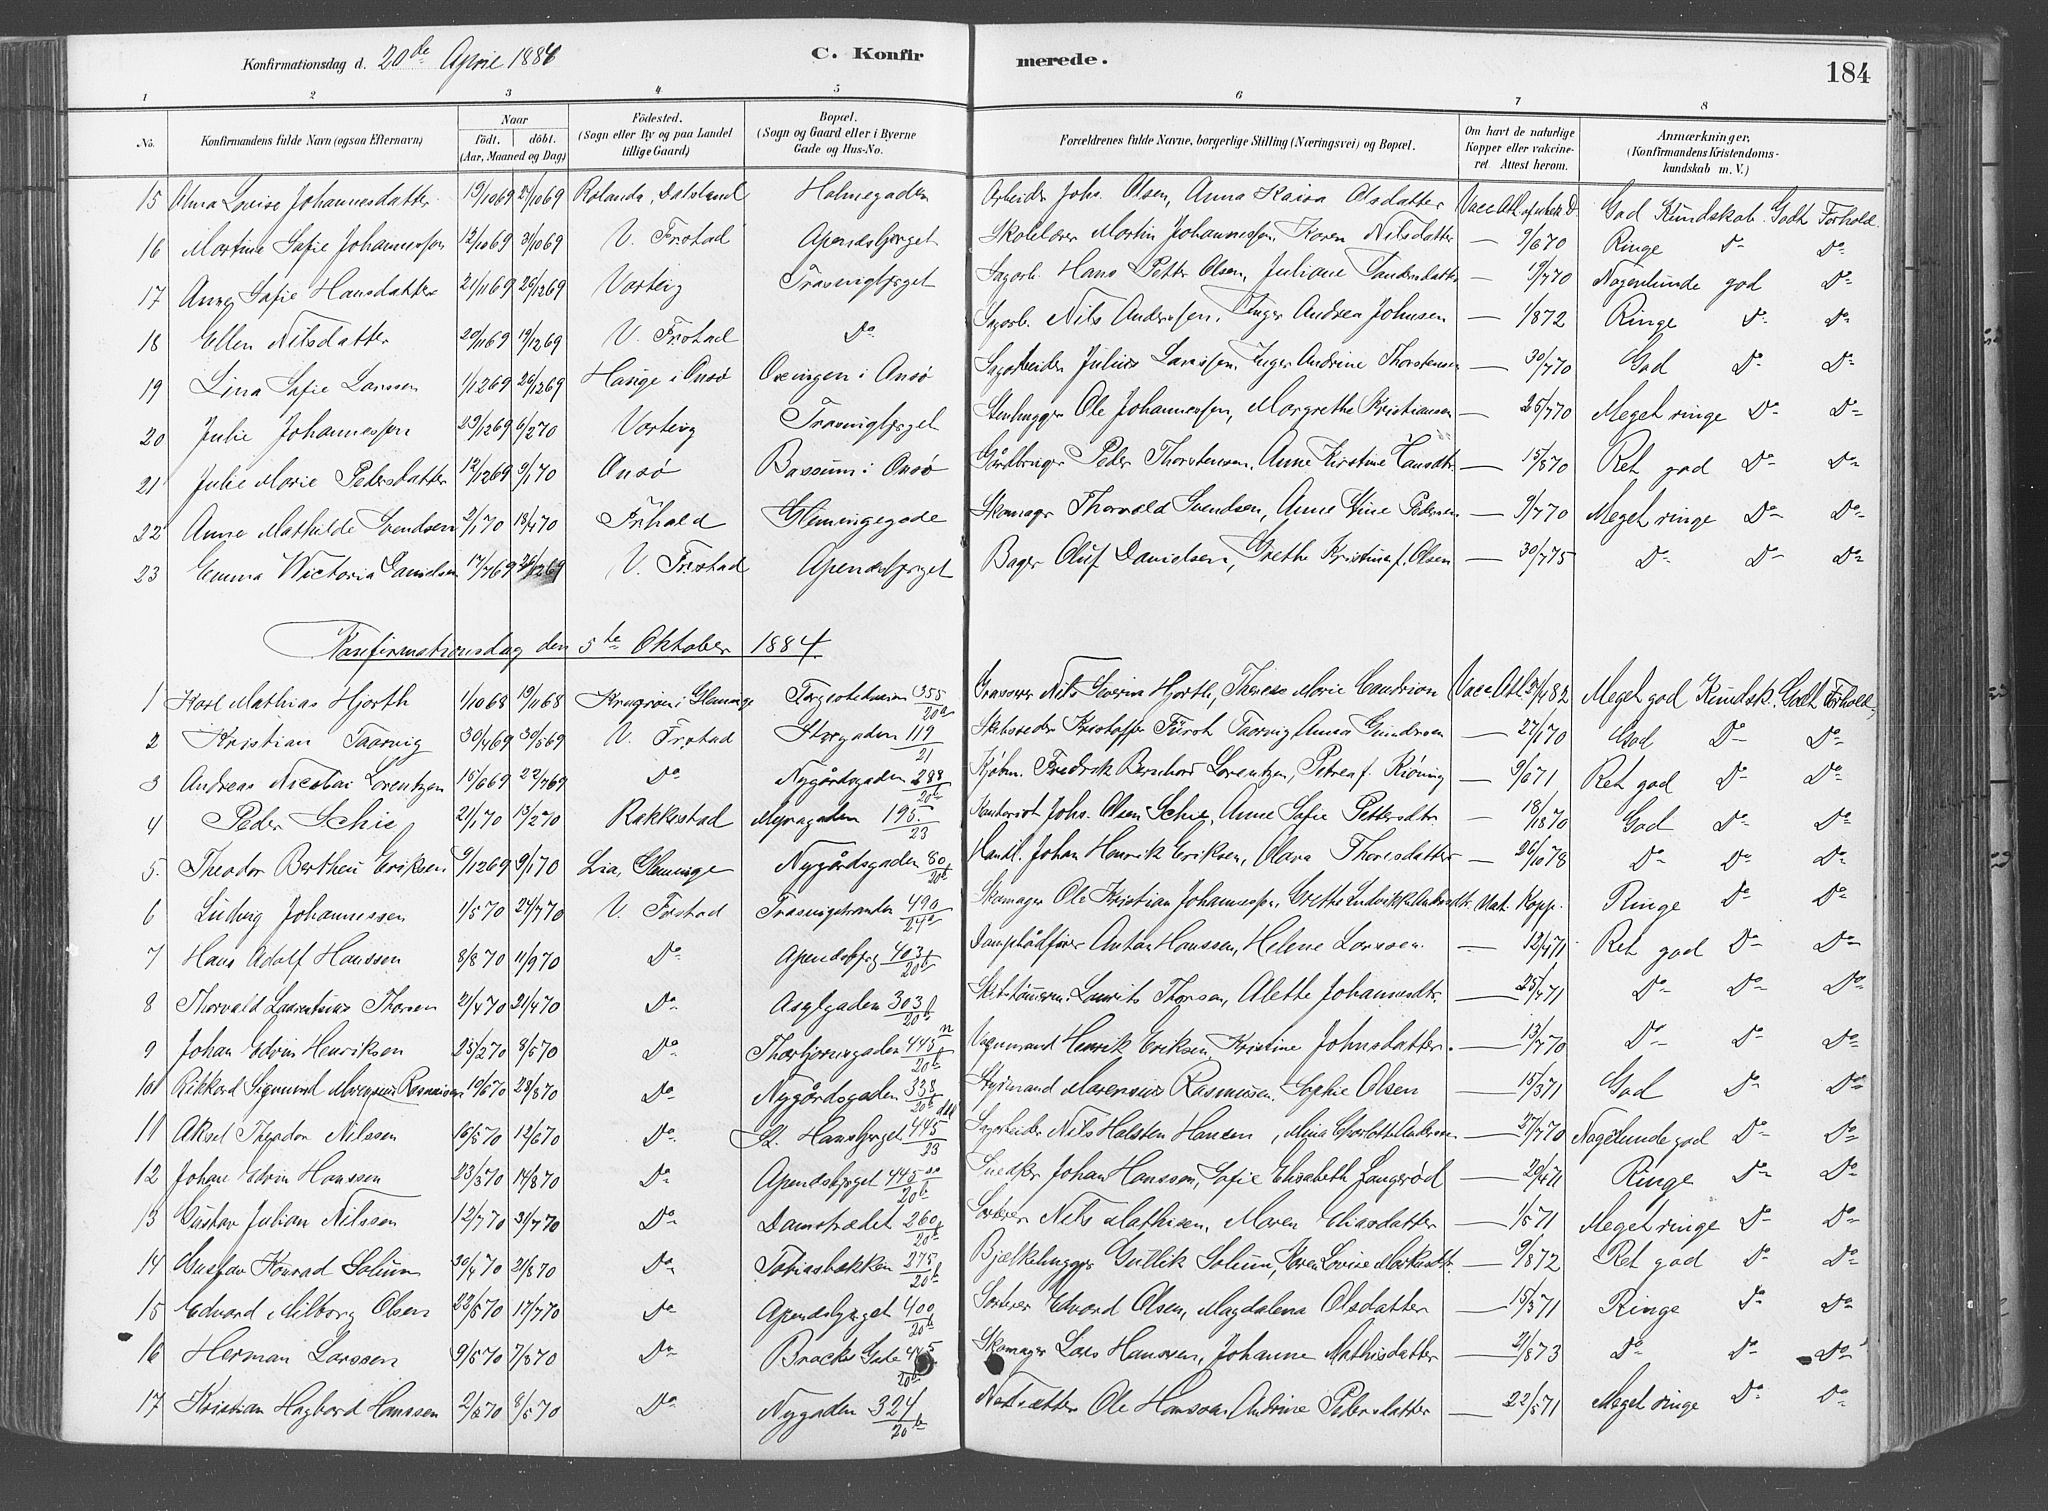 Konfirmationsdag d. 20de April 1884 C. Konfirmerede. 184
1 2 3 4 5 6 7 8
No. Konfirmandens fulde Navn (ogsaa Efternavn) Naar födt. döbt. (Aar, Maaned og Dag) Födested. (Sogn eller By og paa Landet tillige Gaard) Bopæl. (Sogn og Gaard eller i Byerne Gade og Hus-No. Forældrenes fulde Navne, borgerlige Stilling (Næringsvei) og Bopæl. Om havt de naturlige Kopper eller vakcineret Attest herom. Anmærkninger. (Konfirmandens Kristendomskundskab m. V.)
15 Alma Lovise Johannesdatter 19/10 69 Rolanda, Dalsland Holmegaden Arbeider Johs. Olsen, Anna Kaisa Olsdatter Vacc. Att. God Kundskab. Godt Forhold.
16 Martine Sofie Johannessen 12/10 69 31/10 69 V. Frstad Apenæsbjerget Skolelærer Martin Johannessen, Karen Nilsdatter — 9/6 70 Ringe Do Do
17 Anne Sofie Hansdatter 21/11 69 26/12 69 Varteig Trosvigbjerget Sagarb. Hans Petter Olsen, Juliane — 19/7 70 Nogenlunde god Do
18 Ellen Nilsdatter 20/11 69 19/12 69 V. Frstad Do Sagarb. Nils Andersen, Inger Andrea Johnsen — 1/8 72 Ringe Do Do
19 Lina Sofie Larssen 1/12 69 26/12 69 Hauge i Onsö Onsö Sagarbeider Julius Larssen, Inger Andrine Thorstensen — 30/7 70 God Do Do
20 Julie Johannessen 29/12 69 6/2 70 Varteig Trosvigbjerget Stenhugger Ole Johannessen, Margrethe Kristiansen — 25/7 70 Meget ringe Do Do
21 Julie Marie Pedersdatter 12/12 69 9/1 70 Onsö i Onsö Gårdbruger Peder Thorstensen, Anne Kirstine Hansdtr — 15/8 70 Ret god Do Do
22 Anne Mathilde Svendsen 2/1 70 18/4 70 Frhald Glemingegade Skomager Thorvald Svendsen, Anne Stine Pedersen — 9/7 70 Meget ringe Do Do
23 Emma Wictoria Danielsen 17/7 69 26/12 69 V. Frstad Apenæsbjerget Bager Oluf Danielsen, Grethe Kristine f. Olsen — 30/7 75 Do Do Do
Konfirmationsdag den 5te Oktober 1884
1 Karl Mathias Hjorth 1/10 68 19/11 68 i Glemminge 355/20a Nils Severin Hjorth, Therese Marie Vacc. Att. Meget god Kundsk. Godt Forhold
2 Kristian Taarvig 30/4 69 30/5 69 V. Frstad Storgaden 119/21 Skibsreder Kristoffer Fürst Taarvig, Anna Gundersen — 27/1 70 God Do Do
3 Andreas Nicolai Lorentzen 15/6 69 22/7 69 Do Nygårdsgaden 288/20b Kjøbm. Fredrik Bernhard Lorentzen, Petrea f. Kiöning — 9/6 71 Ret god Do Do
4 Peder Schie 21/1 70 13/2 70 Rakkestad Myragaden 195/23 Kontorist Johs. Olsen Schie, Anne Sofie Pettersdtr. — 18/11 70 God Do Do
5. Theodor Bertheu Eriksen 9/12 69 9/1 70 Lia, Glemminge Nygårdsgaden 80/20b Handl. Johan Henrik Eriksen, Olava Thoresdatter — 26/10 78 Do Do Do
6 Ludvig Johannessen 1/5 70 24/7 70 V. Frstad Trosvigstranden 490/21a Skomager Ole Kristian Johannessen, Grethe Ludvikke Andersdtr. Nat. Kopp. Ringe Do Do
7 Hans Adolf Hanssen 8/8 70 11/9 70 Do Apenæsbjerg 403/20b Dampbådfører Anton Hanssen, Helene Larssen. — 12/4 71 Ret god Do Do
8 Thorvald Laurentsius Thorsen 21/4 70 21/4 70 Do Asylgaden 303/20b Skibstömmerm. Laurits Thorsen, Alette Johannesdtr. — 25/4 71 Do Do Do
9 Johan Edvin Henriksen 25/2 70 8/5 70 Do Thorbjørnsgaden 445n/20b Vognmand Henrik Eriksen, Kristine Johnsdatter — 13/7 70 Do Do Do
10 Rikkard Sigmund Rasmussen 19/6 70 28/8 70 Do Nygårdsgaden 338/20b Styrmand Marensius Rasmussen, Sophie Olsen — 15/3 71 God Do Do
11 Aksel Theodor Nilssen 16/5 70 12/6 70 Do St. Hansbjerget 445/23 Sagarbeider Nils Halsten Hansen, Mina Charlotte Andersen — 27/7 70 Nogenlunde god Do Do
12 Johan Edvin Hanssen 23/3 70 14/8 70 Do Apenæsbjerget 445/20b Snedker Johan Hanssen, Sofie Elisabeth Langerød — 20/4 71 Ringe Do Do
13 Gustav Julian Nilssen 12/7 70 31/7 70 Do Damstrædet 260/20b Sorterer Nils Mathisen, Maren Eliasdatter — 1/5 71 Meget ringe Do Do
14 Gustav Konrad Solium 30/4 70 21/8 70 Do Tobiasbakken 275/20b Bjælkehugger Gullik Solium, Karen Lovise Markusdtr. — 9/8 72 Ret god Do Do
15 Edvard Milborg Olsen 22/5 70 17/7 70 Do Apenæsbjerget 400/20b Sorterer Edvard Olsen, Magdalena Olsdatter — 15/3 71 Ringe Do Do
16 Herman Larssen 9/5 70 7/8 70 Do Brocks Gate Skomager Lars Hanssen, Johanne Mathisdatter — 21/8 73 Do Do Do
17 Kristian Hagbard Hanssen 2/2 70 8/5 70 Do Nygaden 324/20b Ole Hanssen, Andrine Pedersdatter — 22/5 71 Meget ringe Do Do